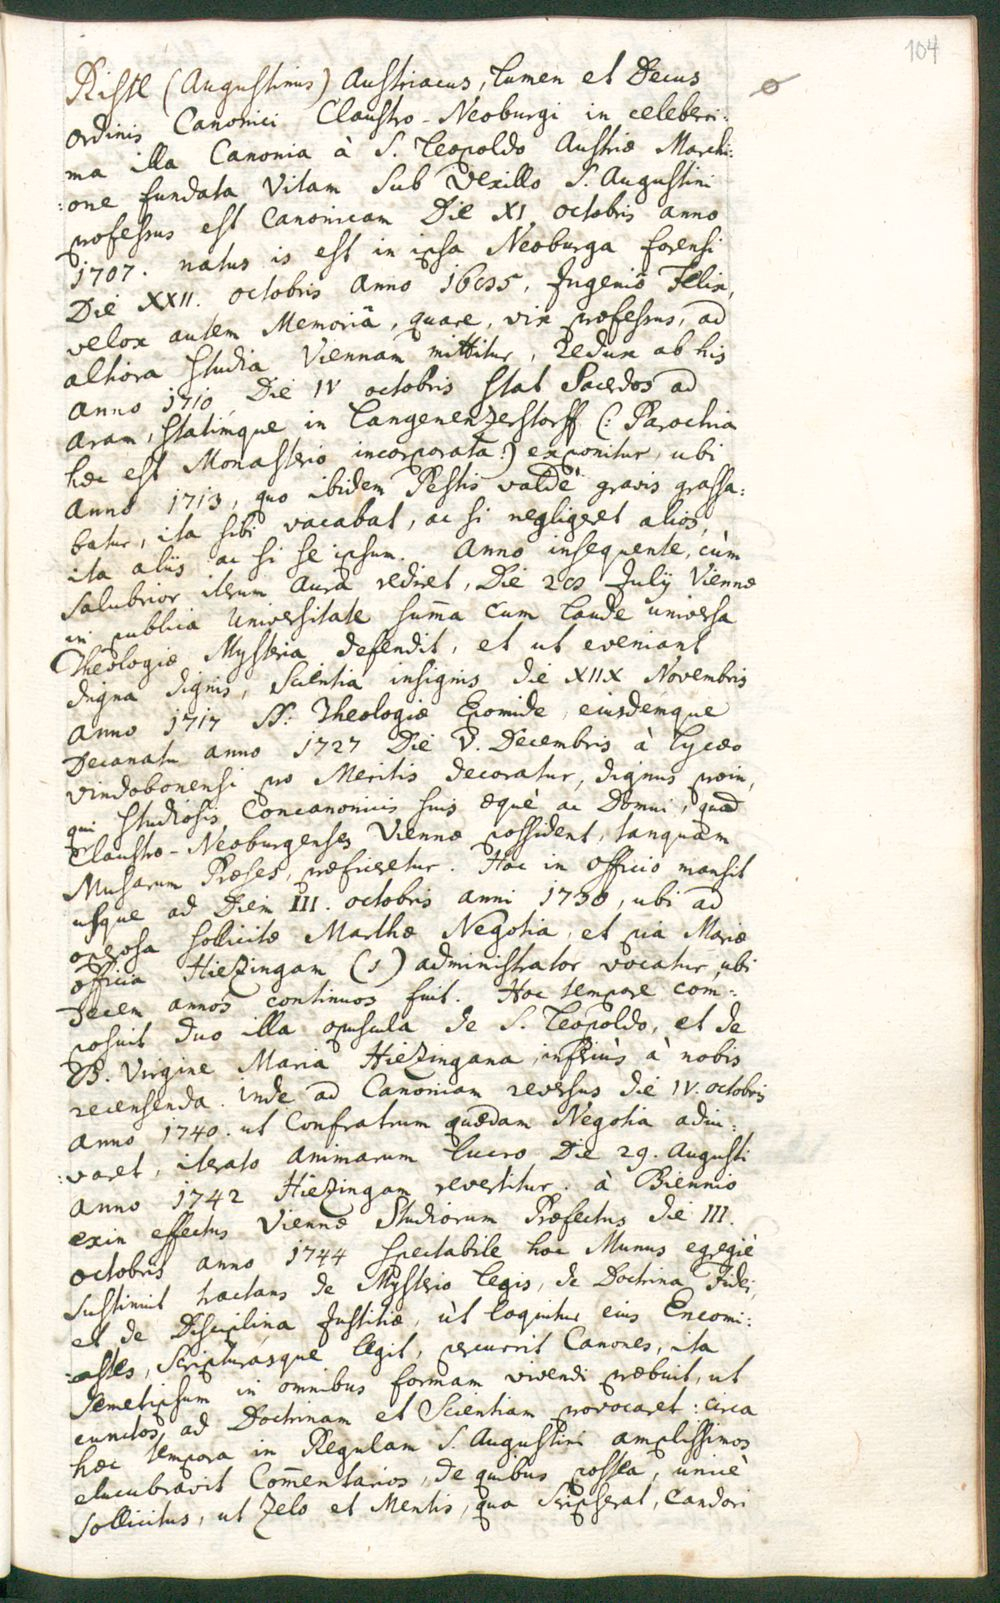 104
Ristl (Augustinus) Austriacus, Lumen et Decus
ordinis Canonici Claustro-Neoburgi in celeberri:
ma illa Canonia à S. Leopoldo Austriæ Marchi:
:one fundata Vitam sub Vexillo S. Augustini
professus est Canonicam Die XI octobris anno
1707. natus is est in ipsa Neoburga forensi
Die XXII. octobris Anno 1695, Ingeniô Felix,
velox autem Memoriâ, quare, vix professus, ad
altiora studia Viennam mittitur, Redux ab his
anno 1710 Die IV octobris stat Sacerdos ad
aram, statimque in Langenenzerstorff (: Parochia
hæc est Monasterio incorporata :) exponitur, ubi
Anno 1713, quo ibidem Pestis valdè gravis grassa:
batur, ita sibi vacabat, ac si negligeret alios,
ita aliis ac si se ipsum. Anno insequente, cùm
Salubrior iterum Aura rediret, Die 29 Julij Viennæ
in publica Universitate sum̄a cum Laude universa
Theologiæ Mysteria defendit, et ut eveniant
digna dignis, Scientia insignis die XIIX Novembris
anno 1717 SS. Theologiæ Epomide, eiusdémque
Decanatu anno 1727 Die V. Decembris à Lycæo
vindobonensi pro Meritis decoratur, dignus proin,
qui studiosis Concanonicis suis æquè ac Domui, quam
Claustro-Neoburgenses Viennæ possident, tanquam
Musarum Præses, præficeretur. Hoc in officio mansit
usque ad Diem III. octobris anni 1730, ubi ad
operosa sollicitæ Marthæ Negotia, et pia Mariæ
officia Hiezingam (s) administrator vocatur, ubi
decem annos continuos fuit. Hoc tempore com:
posuit duo illa opuscula de S. Leopoldo, et de
B. Virgine Maria Hiezingana, inferiùs à nobis
recensenda. Inde ad Canoniam reversus die IV. octobris
anno 1740. ut Confratrum quædam Negotia adiu:
:varet, iterato animarum lucro Die 29. Augusti
anno 1742 Hiezingam revertitur. à Biennio
exin effectus Viennæ Studiorum Præfectus die III.
octobris anno 1744 spectabile hoc Munus egregiè
sustinuit tractans de Mysterio legis, de Doctrina Fidei,
et de Disciplina Justitiæ, ùt loquitur eius Encomi:
:astes, Scripturásque legit, percurrit Canones, ita
semetipsum in omnibus formam vivendi præbuit, ut
cunctos ad Doctrinam et Scientiam provocaret: circa
hæc tempora in Regulam S. Augustini amplissimos
elucubravit Com̄entarios, de quibus postea, unicè
sollicitus, ut Zelo et Mentis, qua scripserat, Candori